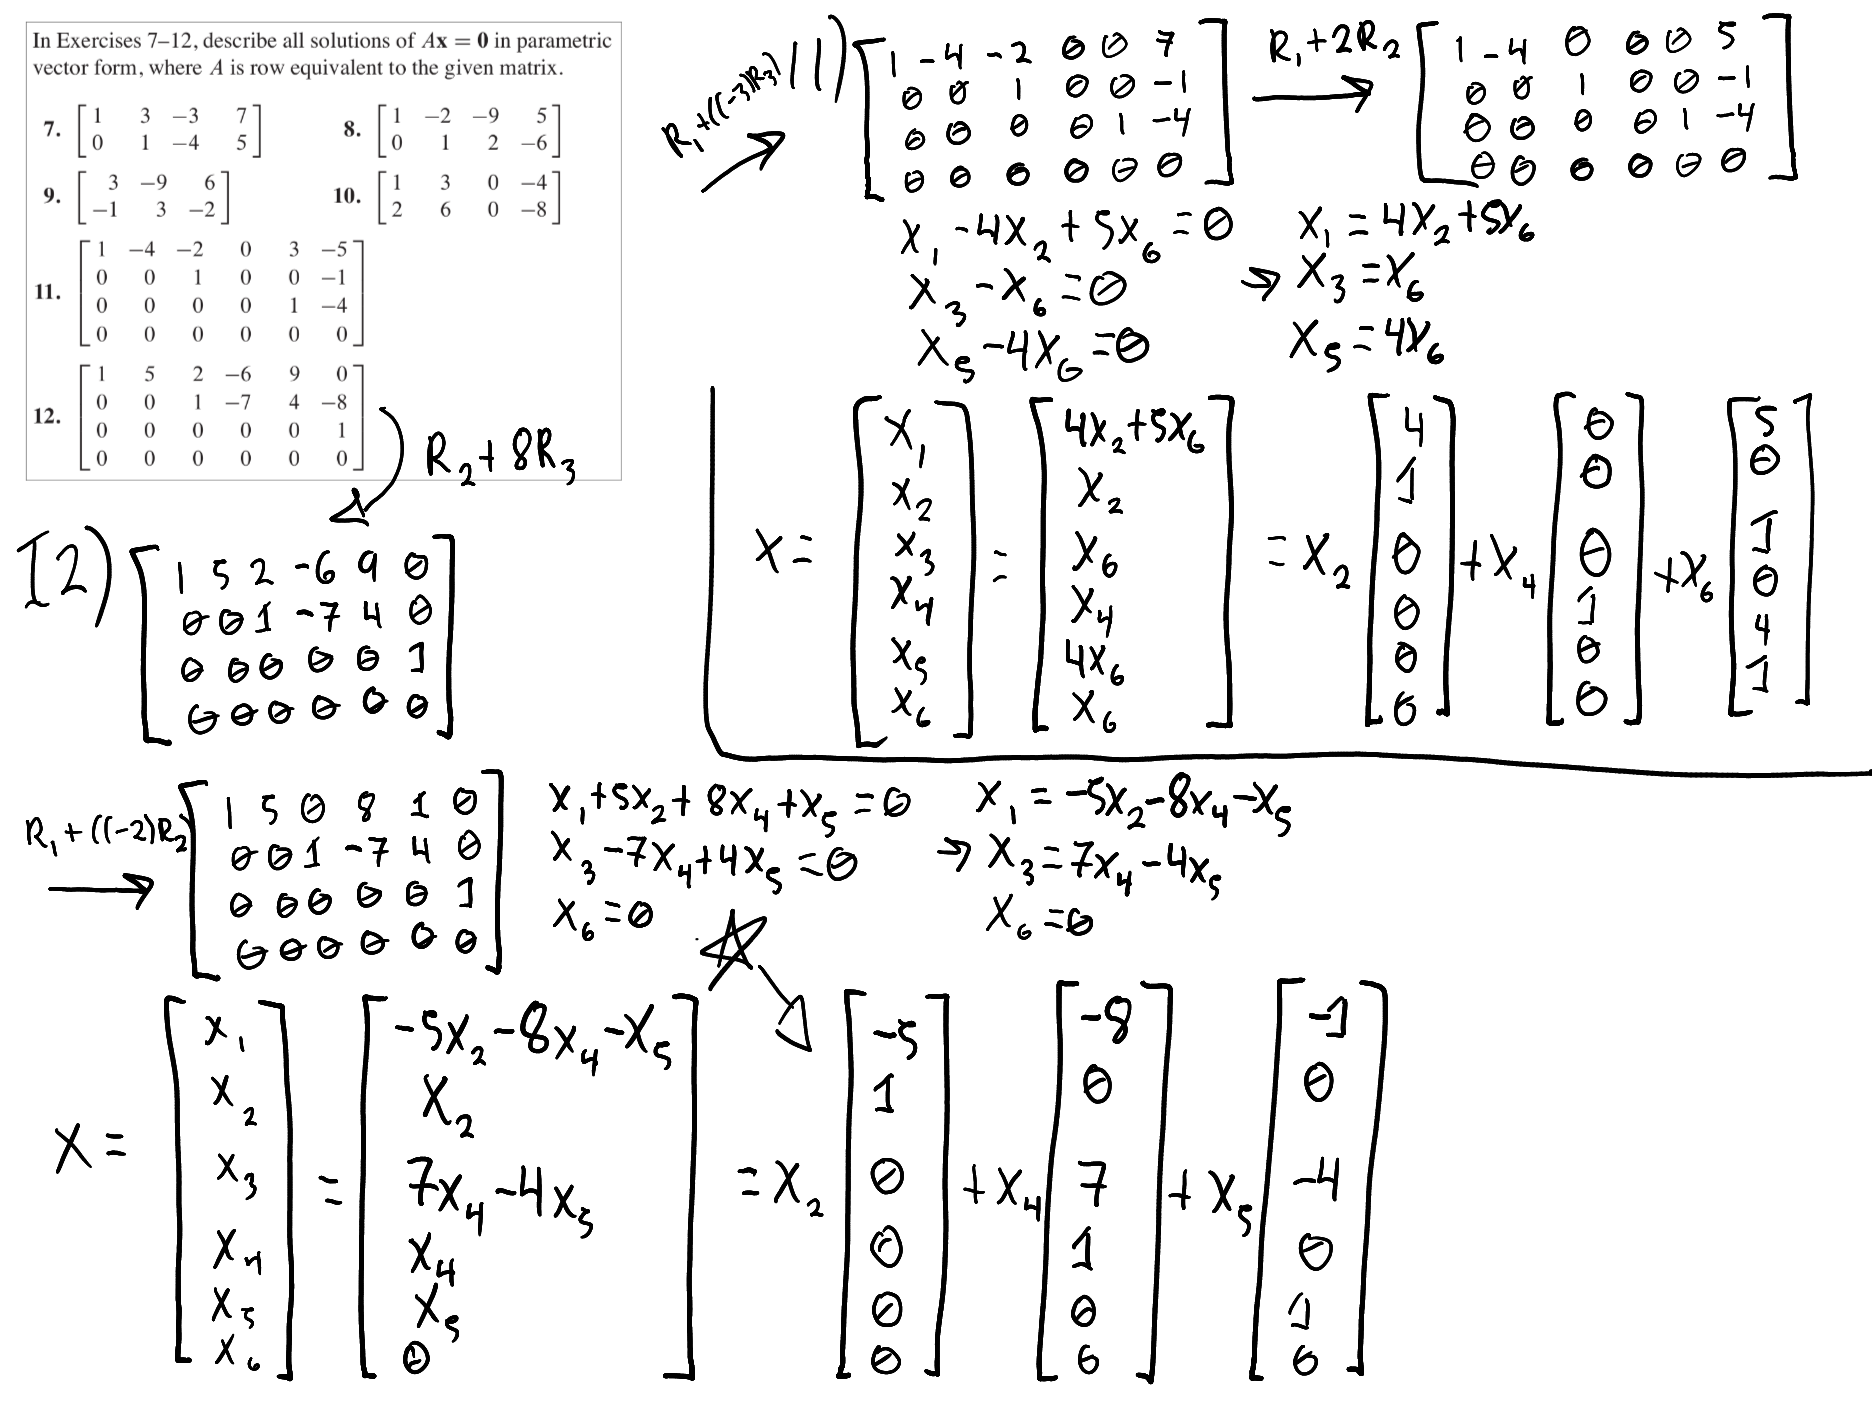 In Exercises 7–12, describe all solutions of Ax = 0 in parametric
vector form, where A is row equivalent to the given matrix.
7. [1 3 −3 7
0 1 −4 5]
8. [1 −2 −9 5
0 1 2 −6]
9. [3 −9 6
−1 3 −2]
10. [1 3 0 −4
2 6 0 −8]
11. [1 −4 −2 0 3 −5
0 0 1 0 0 −1
0 0 0 0 1 −4
0 0 0 0 0 0]
12. [1 5 2 −6 9 0
0 0 1 −7 4 −8
0 0 0 0 0 1
0 0 0 0 0 0]
R₂+8R₃
R₁+((-3)R₃)
11) [1 -4 -2 0 0 7
0 0 1 0 0 -1
0 0 0 0 1 -4
0 0 0 0 0 0]
R₁+2R₂ →
[1 -4 0 0 0 5
0 0 1 0 0 -1
0 0 0 0 1 -4
0 0 0 0 0 0]
x₁-4x₂+5x₆=0
x₃-x₆=0
x₅-4x₆=0
→
x₁=4x₂+5x₆
x₃=x₆
x₅=4x₆
x= [x₁
x₂
x₃
x₄
x₅
x₆]
= [4x₂+5x₆
x₂
x₆
x₄
4x₆
x₆]
=x₂ [4
1
0
0
0
0]
+x₄ [0
0
0
1
0
0]
+x₆ [5
0
1
0
4
1]
12) [1 5 2 -6 9 0
0 0 1 -7 4 0
0 0 0 0 0 1
0 0 0 0 0 0]
R₁+((-2)R₂) →
[1 5 0 8 1 0
0 0 1 -7 4 0
0 0 0 0 0 1
0 0 0 0 0 0]
x₁+5x₂+8x₄+x₅=0
x₃-7x₄+4x₅=0
x₆=0
→
x₁=-5x₂-8x₄-x₅
x₃=7x₄-4x₅
x₆=0
x= [x₁
x₂
x₃
x₄
x₅
x₆]
= [-5x₂-8x₄-x₅
x₂
7x₄-4x₅
x₄
x₅
0]
=x₂ [-5
1
0
0
0
0]
+x₄ [-8
0
7
1
0
0]
+x₅ [-1
0
-4
0
1
0]